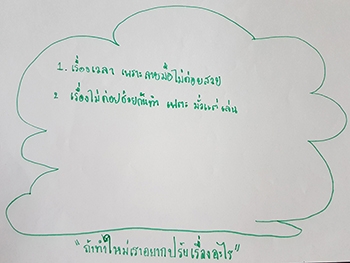 1. เรื่องเวลา เพราะลายมือไม่ค่อยสวย
2 เรื่องไม่ค่อยช่วยกันทำ เพราะ มัวแต่เล่น
"ถ้าทำใหม่เราอยากปรับเรื่องอะไร"